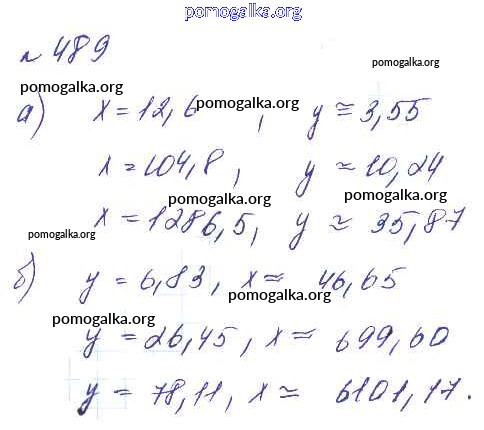 pomogalka.org
№ 489
pomogalka.org
pomogalka.org
а) x = 12,6 pomogalka.org, y ≈ 3,55
x = 104,8, y ≈ 10,24
pomogalka.org pomogalka.org
x = 1286,5, y ≈ 35,87
pomogalka.org
б) y = 6,83, x ≈ 46,65
pomogalka.org
pomogalka.org
y = 26,45, x ≈ 699,60
y = 78,11, x ≈ 6101,17.